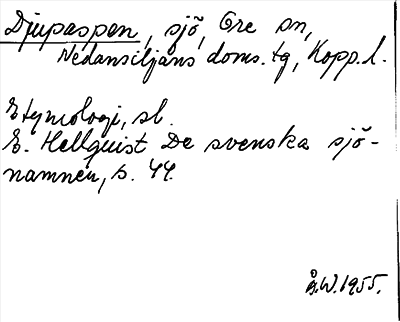 Djupaspen, sjö, Ore sn,
Nedansiljans doms. tg, Kopp. l.
Etymologi, sl.
E. Hellquist De svenska sjö-
namnen, s. 44.
Å.W. 1955.